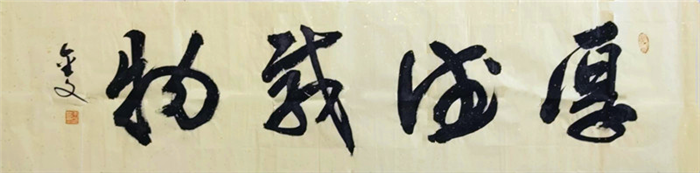 厚德載物
金文